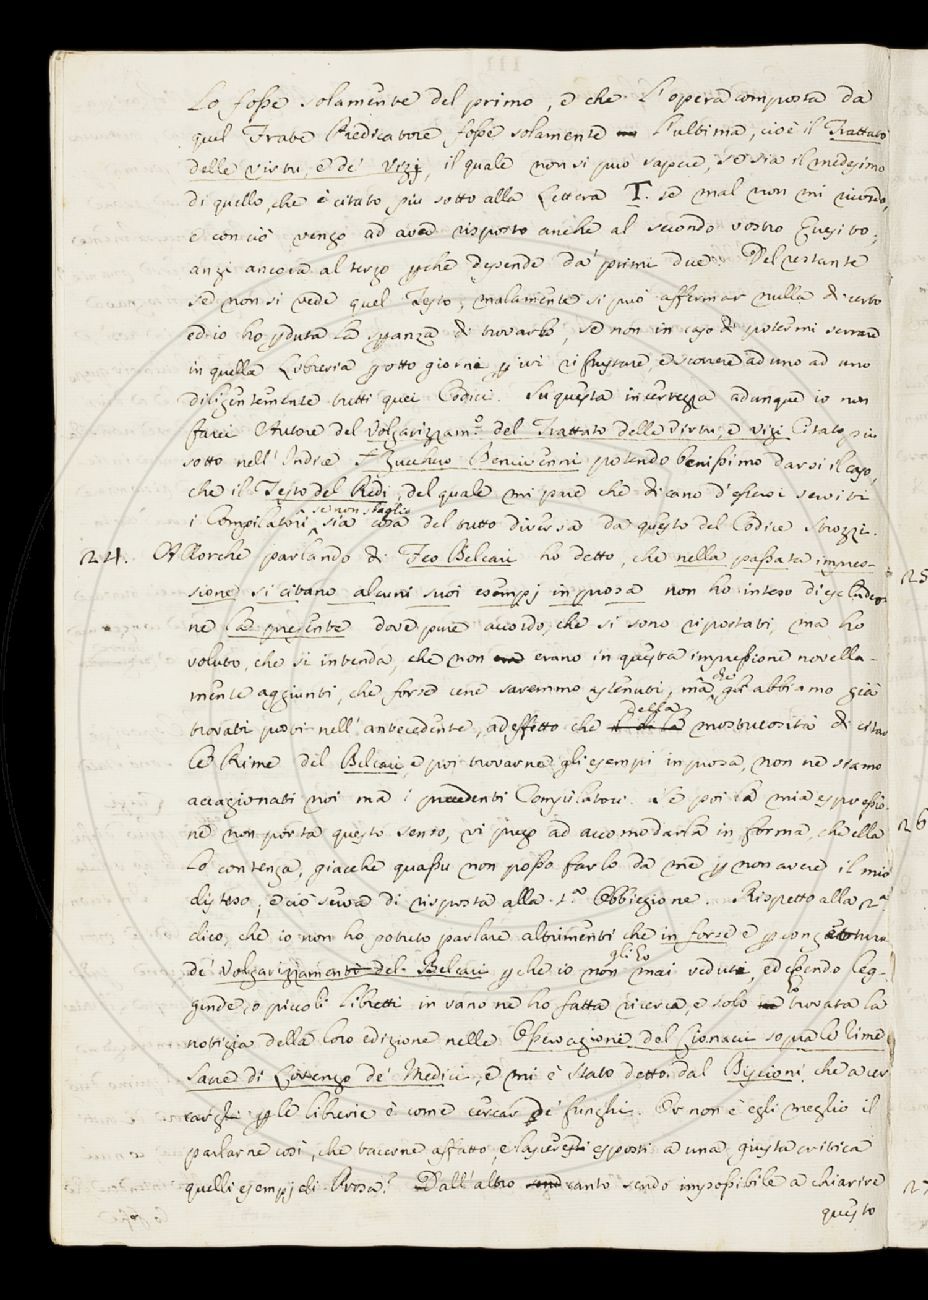 Lo fosse solamente del primo, e che l'opera composta da
quel Frate Predicatore fosse solamente l'ultima, cioè il Trattato
delle virtù, e de' vizj, il quale non si può sapere, se sia il medesimo
di quello, che è citato più sotto alla Lettera T. se mal non mi ricordo,
e con ciò vengo ad aver risposto anche al secondo vostro Quesito;
anzi ancora al terzo pche depende da' primi due. Del restante
se non si vede quel Testo, malamente si può affermar nulla di certo
ed io ho pduta la spanza di trovarlo, se non in caso di potermi serrare
in quella Libreria p otto giorni p ivi rifrustare, e scorrere ad uno ad uno
diligentemente tutti quei Codici. Su questa incertezza adunque io non
farei Autore del Volgarizzam.º del Trattato delle Virtù, e Vizi Citato più
sotto nell'Indice Zucchero Bencivenni potendo benissimo darsi il caso,
che il Testo del Redi, del quale mi pare che dicano d'essersi serviti
i Compilatori se non sbaglio sia cosa del tutto diversa da questo del Codice Strozzi.
24. Allorchè parlando di Feo Belcari ho detto, che nella passata impres-
sione si citano alcuni suoi esempj in prosa non ho inteso di escluder-
ne la presente dove pure accordo, che si sono riportati, ma ho
voluto, che si intenda, che non erano in questa impressione novella-
mente aggiunti, che forse cene saremmo astenuti, ma che gli abbiamo già
trovati posti nell'antecedente, ad effetto che della mostruosità di citar
le Rime del Belcari, e poi trovarne gli esempi in prosa, non ne siamo
accagionati noi ma i precedenti Compilatori. Se poi la mia espressio-
ne non porta questo senso, vi prego ad accomodarla in forma, che ella
lo contenga, giacchè quassù non posso farlo da me p non avere il mio
disteso, e ciò serva di risposta alla 1.ª Obbiezione. Rispetto alla 2.ª
dico, che io non ho potuto parlare altrimenti che in forse e p congettura
de' Volgarizzamenti del Belcari pche io non gli ho mai veduti, ed essendo leg-
gende, o piccoli libretti in vano ne ho fatta ricerca, e solo ho trovata la
notizia della loro edizione nelle Osservazioni del Cionacci sopra le rime
sacre di Lorenzo de' Medici, e mi è stato detto dal Biscioni che a cer
cargli p le librerie è come cercar de' funghi. Or non è egli meglio il
parlarne così, che tacerne affatto, e lasciargli esposti a una giusta critica
quelli esempj di Prosa? Dall'altro canto sendo impossibile a chiarire
questo
25
26
27